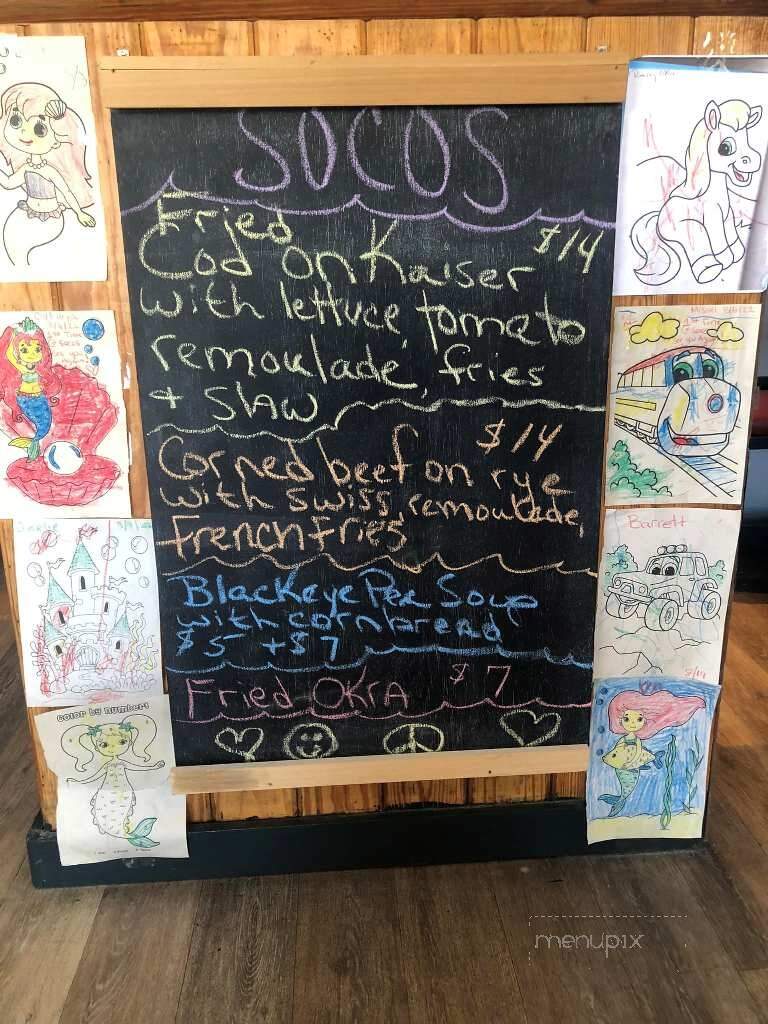 SOCOS
Fried
Cod on Kaiser $14
with lettuce, tomato
remoulade, fries
+ Slaw
$14
Corned beef on rye
with swiss, remoulade,
french fries
Blackeye Pea Soup
with cornbread
$5 + $7
Fried OKrA $7
Color by number!
Barrett
5/14
menupix